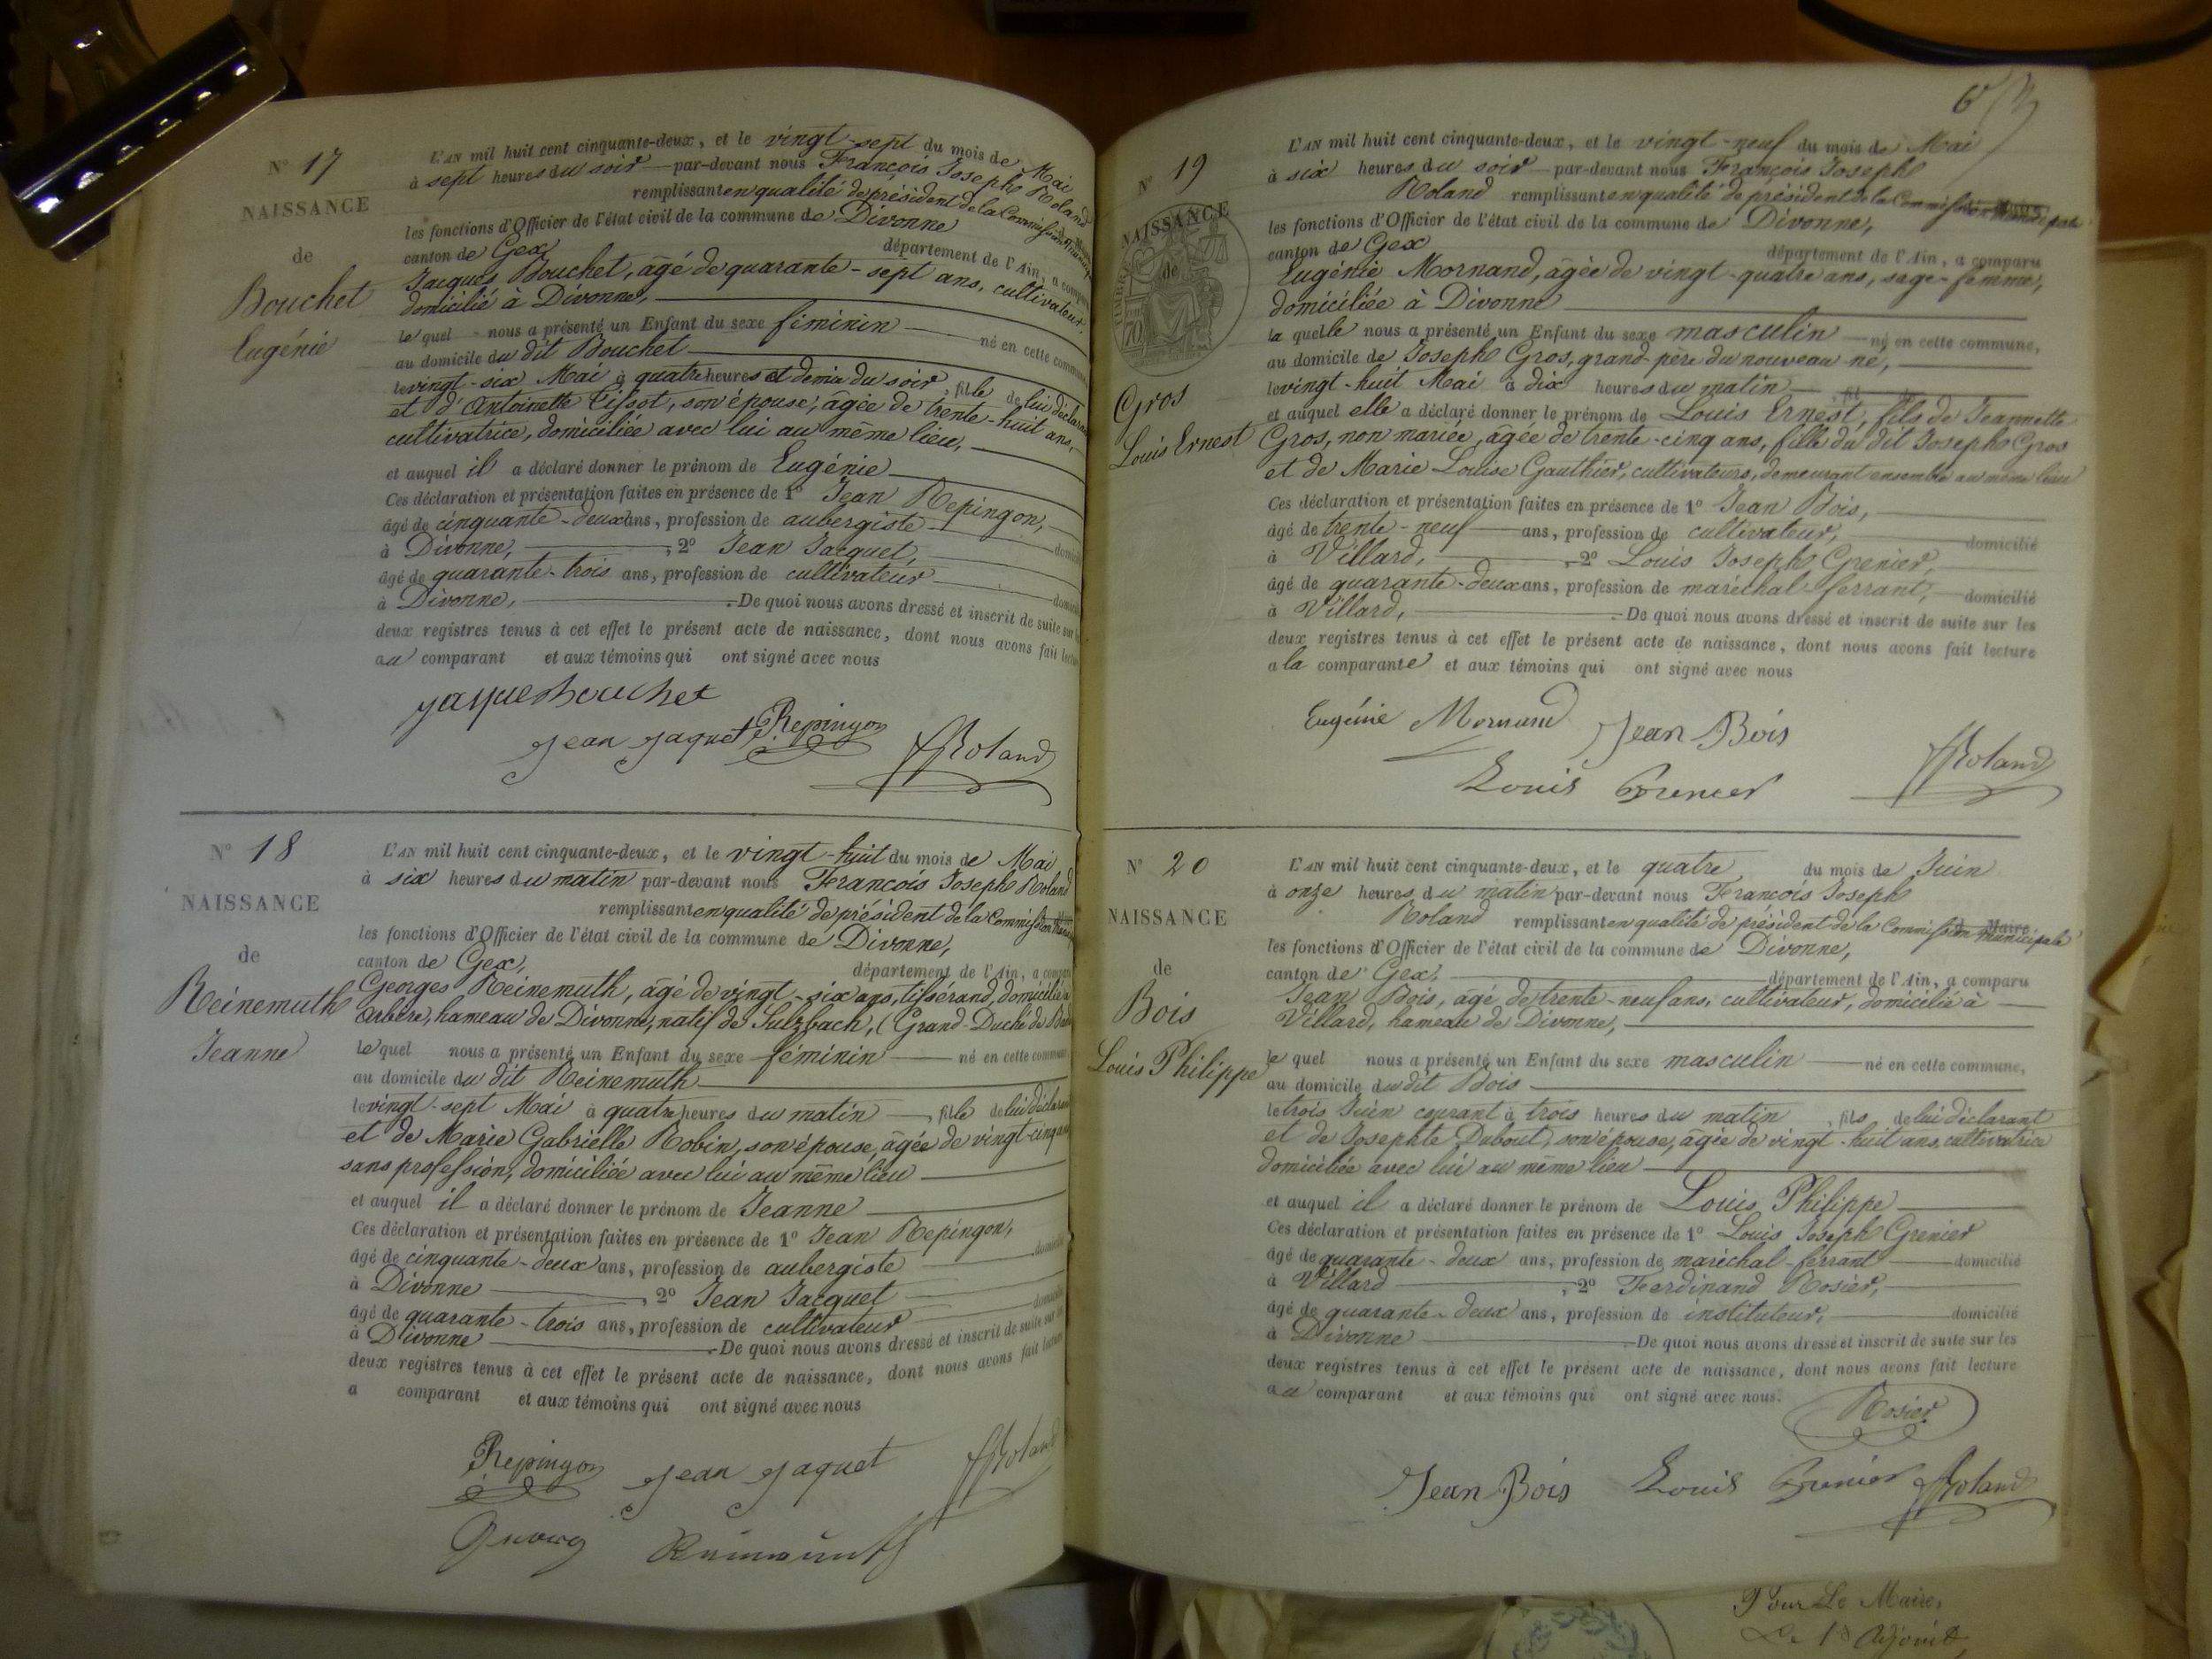 N° 17
NAISSANCE
de
Bouchet
Eugénie
L'AN mil huit cent cinquante-deux, et le vingt-sept du mois de Mai
à sept heures du soir par-devant nous François Joseph Roland
remplissant en qualité de président de la Commission
les fonctions d'Officier de l'état civil de la commune de Divonne
canton de Gex département de l'Ain, a comparu
Jacques Bouchet, âgé de quarante-sept ans, cultivateur,
domicilié à Divonne,
le quel nous a présenté un Enfant du sexe féminin né en cette commune
au domicile du dit Bouchet
le vingt-six Mai à quatre heures et demie du soir, fille de lui déclarant
et d'Antoinette Tissot, son épouse, âgée de trente-huit ans,
cultivatrice, domiciliée avec lui au même lieu,
et auquel il a déclaré donner le prénom de Eugénie
Ces déclaration et présentation faites en présence de 1° Jean Repingon,
âgé de cinquante-deux ans, profession de aubergiste domicilié
à Divonne, , 2° Jean Jacquet,
âgé de quarante-trois ans, profession de cultivateur domicilié
à Divonne, .De quoi nous avons dressé et inscrit de suite sur les
deux registres tenus à cet effet le présent acte de naissance, dont nous avons fait lecture
au comparant et aux témoins qui ont signé avec nous
Jaques bouchet
Jean Jaquet Repingon FRoland
N° 18
NAISSANCE
de
Reinemuth
Jeanne
L'AN mil huit cent cinquante-deux, et le vingt-huit du mois de Mai
à six heures du matin par-devant nous François Joseph Roland
remplissant en qualité de président de la Commission
les fonctions d'Officier de l'état civil de la commune de Divonne,
canton de Gex, département de l'Ain, a comparu
Georges Reinemuth, âgé de vingt-six ans, tissérand, domicilié à
Arbère, hameau de Divonne, natif de Sulzbach, (Grand-Duché de
le quel nous a présenté un Enfant du sexe féminin né en cette commune
au domicile du dit Reinemuth
le vingt-sept Mai à quatre heures du matin, fille de lui déclarant
et de Marie Gabrielle Robin, son épouse, âgée de vingt-cinq ans
sans profession, domiciliée avec lui au même lieu
et auquel il a déclaré donner le prénom de Jeanne
Ces déclaration et présentation faites en présence de 1° Jean Repingon,
âgé de cinquante-deux ans, profession de aubergiste domicilié
à Divonne , 2° Jean Jacquet
âgé de quarante-trois ans, profession de cultivateur domicilié
à Divonne .De quoi nous avons dressé et inscrit de suite sur les
deux registres tenus à cet effet le présent acte de naissance, dont nous avons fait lecture
a comparant et aux témoins qui ont signé avec nous
Repingon Jean Jaquet FRoland
N° 19
NAISSANCE
de
70
Gros
Louis Ernest
L'AN mil huit cent cinquante-deux, et le vingt-neuf du mois de Mai
à six heures du soir par-devant nous François Joseph
Roland remplissant en qualité de président de la Commission
les fonctions d'Officier de l'état civil de la commune de Divonne,
canton de Gex département de l'Ain, a comparu
Eugénie Mornand, âgée de vingt-quatre ans, sage-femme,
domiciliée à Divonne
la quelle nous a présenté un Enfant du sexe masculin né en cette commune,
au domicile de Joseph Gros, grand-père du nouveau né,
le vingt-huit Mai à dix heures du matin , fil
et auquel elle a déclaré donner le prénom de Louis Ernest, fils de Jeannette
Gros, non mariée, âgée de trente-cinq ans, fille du dit Joseph Gros
et de Marie Louise Gauthier, cultivateurs, demeurant ensemble au même lieu
Ces déclaration et présentation faites en présence de 1° Jean Bois,
âgé de trente-neuf ans, profession de cultivateur, domicilié
à Villard, , 2° Louis Joseph Grenier,
âgé de quarante-deux ans, profession de maréchal ferrant, domicilié
à Villard, .De quoi nous avons dressé et inscrit de suite sur les
deux registres tenus à cet effet le présent acte de naissance, dont nous avons fait lecture
a la comparante et aux témoins qui ont signé avec nous
Eugénie Mornand Jean Bois
Louis Grenier FRoland
N° 20
NAISSANCE
de
Bois
Louis Philippe
L'AN mil huit cent cinquante-deux, et le quatre du mois de Juin
à onze heures du matin par-devant nous François Joseph
Roland remplissant en qualité de président de la Commission Municipale
les fonctions d'Officier de l'état civil de la commune de Divonne,
canton de Gex, département de l'Ain, a comparu
Jean Bois, âgé de trente-neuf ans, cultivateur, domicilié à
Villard, hameau de Divonne,
le quel nous a présenté un Enfant du sexe masculin né en cette commune,
au domicile du dit Bois
le trois Juin courant à trois heures du matin , fils de lui déclarant
et de Josephte Dubout, son épouse, âgée de vingt-huit ans, cultivatrice
domiciliée avec lui au même lieu
et auquel il a déclaré donner le prénom de Louis Philippe
Ces déclaration et présentation faites en présence de 1° Louis Joseph Grenier
âgé de quarante-deux ans, profession de maréchal-ferrant domicilié
à Villard , 2° Ferdinand Rosier,
âgé de quarante-deux ans, profession de instituteur, domicilié
à Divonne .De quoi nous avons dressé et inscrit de suite sur les
deux registres tenus à cet effet le présent acte de naissance, dont nous avons fait lecture
au comparant et aux témoins qui ont signé avec nous.
Rosier
Jean Bois Louis Grenier FRoland
Pour Le Maire,
Le 1er Adjoint